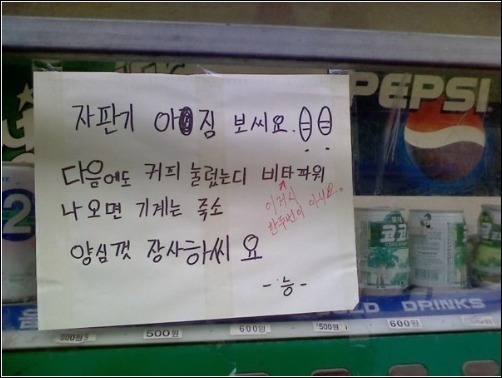 PEPSI
자판기 아 짐 보씨요.
다음에도 커피 눌렀는디 비타파워
이거시
한두번이 아니요.
나오면 기계는 죽소
양심껏 장사하씨요
-능-
코코
2
DRINKS
500원
500원
600원
500원
600원